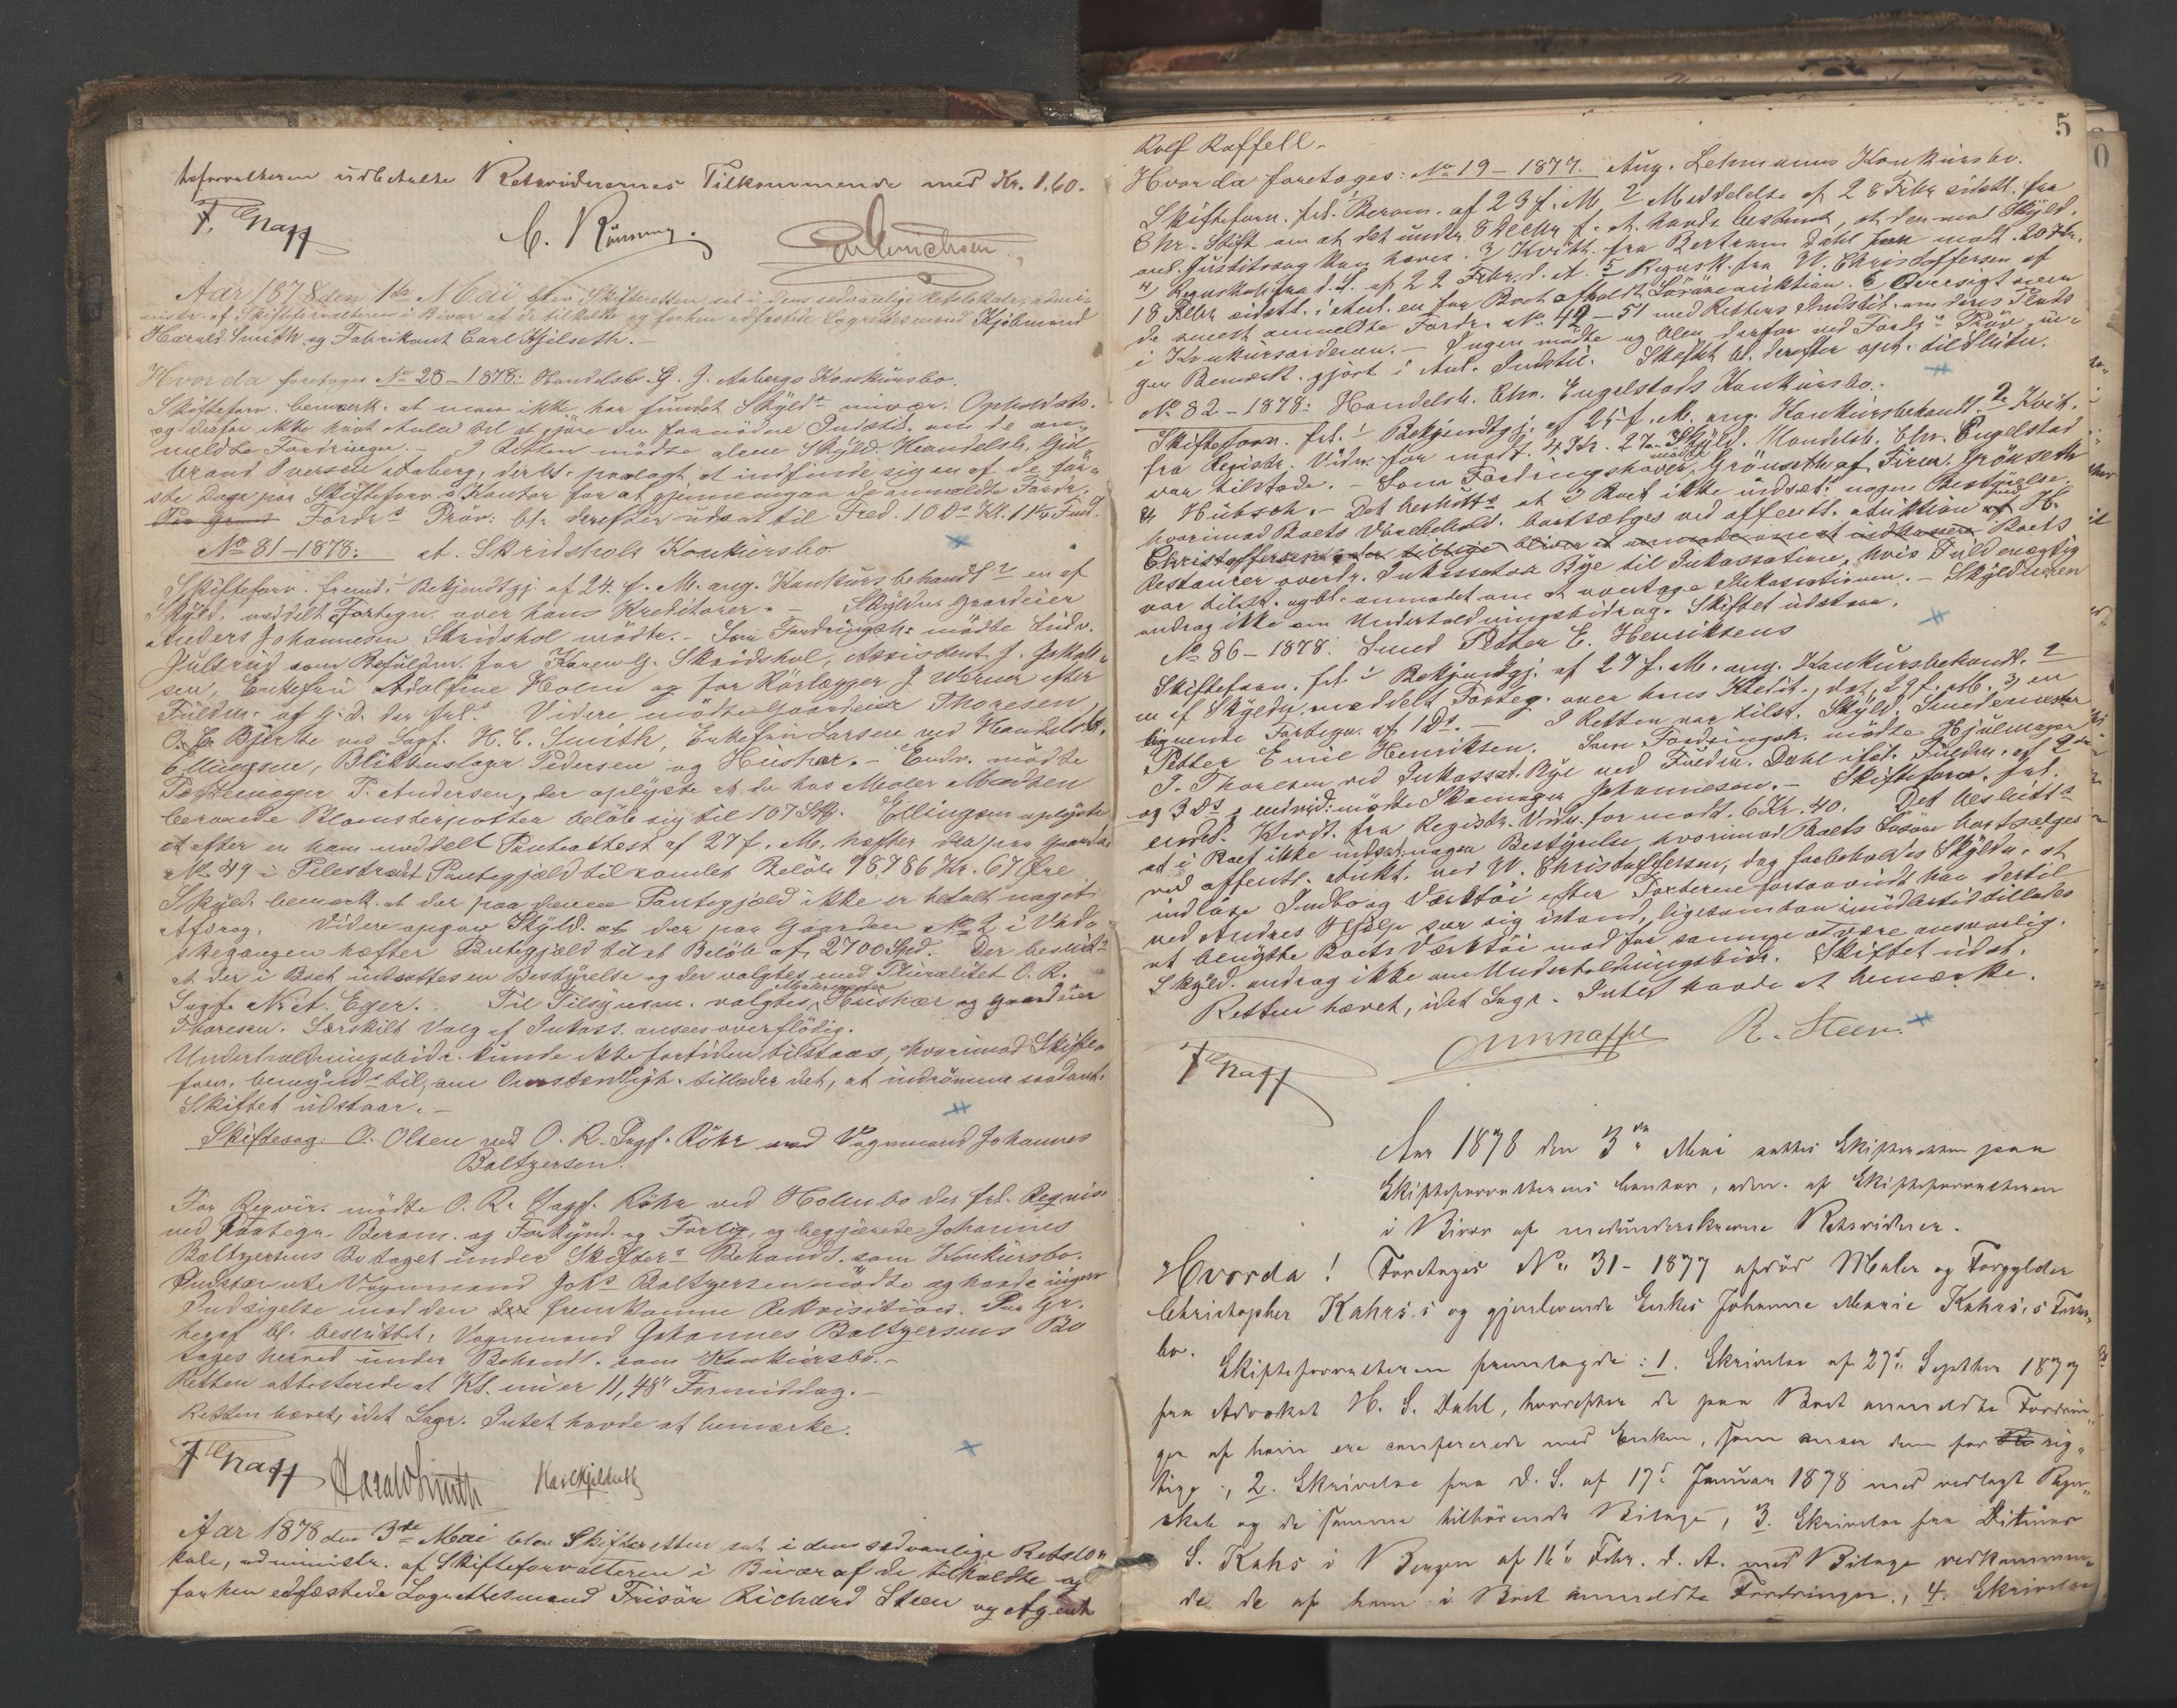 teforvalteren udbetalte Retsvidnernes Tilkommende med Kr. 1.60.
F. Knapp C. Rönning.
Aar 1878 den 1ste Mai blev Skifteretten sat i dens sædvanlige Retslokale, admini-
nistr. af Skifteforvalteren i Bivær af de tilkaldte og forhen edfæstede Lagrettesmænd Kjöbmand
Harald Smith og Fabrikant Carl Kjelseth.-
Hvor da foretoges No 28-1878: Handelsb. G. J. Aabergs Konkursbo.
Skifteforv. bemærk. at man ikke har fundet Skyld. nuvær. Opholdsst.
og derfor ikke havt Anled. til at gjöre den fornödne Indstil. om de an-
meldte Fordringer. - I Retten mödte alene Skyld. Handelsb. Gul-
brand Iversen Aaberg, der bl. paalagt at indfinde sig en af de för-
ste Dage paa Skifteforv.s Kontor for at gjennemgaa de anmeldte Fordr.
Paa Grund Fordr.s Pröv. bl. derefter udsat til Fred. 10 Ds Kl. 11¼ Form.
No 81-1878: A. Skridshols Konkursbo
Skifteforv. fremd. 1 Bekjendtgj. af 24. f. M. ang. Konkursbehandl. 2 en af
Skyld. meddelt Fortegn. over hans Kreditorer. - Skyldn. Gaardeier
Anders Johannesen Skridshol mödte. - Som Fordringsh. mödte Ludv.
Julsrud som Befuldm. for Karen G. Skridshol, Assistent J. Jakob-
sen, Enkefru Adolfine Holm og for Rörlægger J. Werner efter
Fuldm. af G. D. der frl. Videre mödte Gaardeier Thoresen
O. C. Bjerke ved Sagf. H. C. Smith, Enkefru Larsen ved Handelsb.
Ellingsen, Blikkenslager Pedersen og Hushær. - Endv. mödte
Pottemager P. Andersen, der oplyste at de hos Maler Madsen
beroende Blomsterpotter belöb sig til 107 Stk. Ellingsen oplyste
at efter en ham meddelt Panteattest af 27 f. M. hefter der paa Gaarden
No 49 i Pilestrædet Pantegjæld til samlet Belöb 78,786 Kr. 67 Öre
Skyld. bemærk. at der paa denne Pantegjæld ikke er betalt noget
Afdrag. Videre opgav Skyld. at der paa Gaarden No 2 i Vada
skegangen hæfter Pantegjæld til et Belöb af 2700 Spd. Der beslutt.
at der i Boet indsættes en Bestyrelse og der valgtes med Pluralitet O. R.
Sagf. N. A. Eger. Til Tilsynsm. valgtes Malermester Hushær og Gaardeier
Thoresen. Særskilt Valg af Inkass. ansaaes overflödig.
Underholdningsbidr. kunde ikke for tiden tilstaaes, hvorimod Skifte-
forv. bemynd. til, om Omstændigh. tillader det, at indrömme saadant.
Skiftet udstaar. -
Skiftesag: O. Olsen ved O. R. Sagf. Röhr mod Vognmand Johannes
Baltzersen.
For Reqvir. mödte O. R. Sagf. Röhr ved Holmbo der frl. Reqvis.
ved paategn. Beram. og Forkynd. og Forlig, og begjærede Johannes
Baltzersens Bo taget under Skifter.s Behandl. som Konkursbo.
Indstævnte Vognmand Johs Baltzersen mödte og havde ingen
Indsigelse mod den den fremkomne Rekvisition. Paa Gr.
heraf bl. besluttet: Vognmand Johannes Baltzersens Bo
tages herved under Behandl. som Konkursbo.-
Retten attesterede at Kl. nu er 11,48" Formiddag.-
Retten hævet, idet Lagr. Intet havde at bemærke.
F. Knapp Harald Smith Karl Kjelseth
Aar 1878 den 3de Mai blev Skifteretten sat i dens sædvanlige Retslo-
kale, administr. af Skifteforvalteren i Bivær af de tilkaldte og
forhen edfæstede Lagrettesmænd Frisör Richard Steen og Agent
5
Rolf Raffell.
Hvor da foretoges: No 19-1877. Aug. Lehmanns Konkursbo.
Skifteforv. frl. 1 Beram. af 23 f. M. 2 Meddelelse af 28 Febr. sidstl. fra
Chr. Stift om at det under 8 Decbr f. A. havde bestemt, at den mod Skyld.
anl. Justitssag kan hæves. 3, Kvitt. fra Bertram Dahl for modt. 20 Kr.
4, Regnskab fra d. S. af 22 Febr. d. A. 5 Regnsk. fra W. Christoffersen af
18 Febr. sidstl. i Anl. en for Boet afholdt Lösöreauktion. 6 Oversigt over
de senest anmeldte Fordr. No 49-51 med Rettens Indstil. om deres Plads
i Konkursordenen. - Ingen mödte og blev derfor ved Fordr.s Pröv. in-
gen Bemærk. gjort i Anl. Indstil. Skiftet bl. derefter opt. til Slutn.
No 82-1878: Handelsb. Chr. Engelstads Konkursbo.
Skifteforv. frl. 1 Bekjendtgj. af 25 f. M. ang. Konkursbehandl. 2, Kvit.
fra Registr. Vidn. for modt. 4 Kr. 27. Skyld. Handelsb. Chr. Engelstad
var tilstede. - Som Fordringshaver mödte Grönseth af Firm. Grönseth
& Hübsch. - Det beslutt.s at i Boet ikke indsæt. nogen Bestyrelse,
hvorimod Boets Varebehold. bortsælges ved offentl. Auktion ved H.
Christoffersen, der tillige bliver at anmode om at indkassere Boets
Restancer overdr. Inkassator Bye til Inkassation, hvis Fuldmægtig
var tilst. og bl. anmodet om at overtage Inkassationen. - Skyldneren
androg ikke om Underholdningsbidrag. Skiftet udstaar.
No 86-1878. Smed Petter E. Henriksens
Skifteforv. frl. 1 Bekjendtgj. af 27 f. M. ang. Konkursbehandl. 2
en af Skyldn. meddelt Forteg. over hans Kredit., dat. 29 f. M. 3, en
lignende Fortegn. af 1 Ds. - I Retten var tilst. Skyld. Smedemester
Petter Emil Henriksen. Som Fordringsh. mödte Hjulmager
T. Thoresen ved Inkassat. Bye ved Fuldm. Dahl iföl. Fuldm. af 2den
og 3 Ds, endvid. mödte Skomager Johannesen. - Skifteforv. frl.
endv. Kvit. fra Registr. Vidn. for modt. 6 Kr. 40. Det beslutt.s
at i Boet ikke indsæt. nogen Bestyrelse, hvorimod Boets Lösöre bortsælges
ved offentl. Aukt. ved W. Christoffersen, dog forbeholdes Skyldn. at
indlöse Indbo og Værktöi efter Taxterne forsaavidt han dertil
ved Andres Hjælp ser sig istand, ligesom han imidlertid tillades
at benytte Boets Værktöi mod for samme at være ansvarlig.
Skyld. androg ikke om Underholdningsbidr. Skiftet udst.
Retten hævet, idet Lagr. Intet havde at bemærke.
F. Knapp R. Steen.
Aar 1878 den 3die Mai sattes Skifteretten paa
Skifteforvalterens Contor, adm. af Skifteforvalteren
i Bivær af medunderskrevne Retsvidner.
Hvorda! Foretoges No 31-1877 afdöd Maler og Forgylder
Christopher Kahrs's og gjenlevende Enkes Johanne Marie Kahrs's Fælles-
bo.
Skifteforvalteren fremlagde: 1. Skrivelse af 27de Septbr 1877
fra Advokat H. S. Dahl, hvorefter de paa Boet anmeldte Fordrin-
ger af ham ere confererede med Enken, som anser dem for rig-
tige, 2. Skrivelse fra d. S. af 17de Januar 1878 med vedlagt Regn-
skab og de samme tilhörende Bilage, 3. Skrivelse fra Ditmar
S. Kahrs i Bergen af 16de Febr. d. A. med Bilage vedkommen-
de de af ham i Boet anmeldte Fordringer, 4. Skrivelse